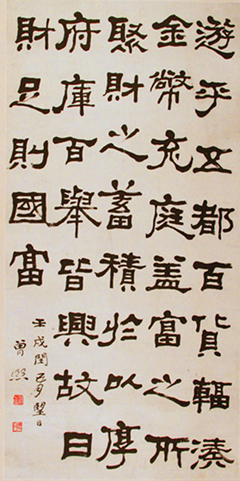 游乎五都百貨輻湊
金幣充庭盖富之所
聚財之蓄積於以厚
府庫百舉皆興故曰
財足則國富
壬戌閏
曾熙